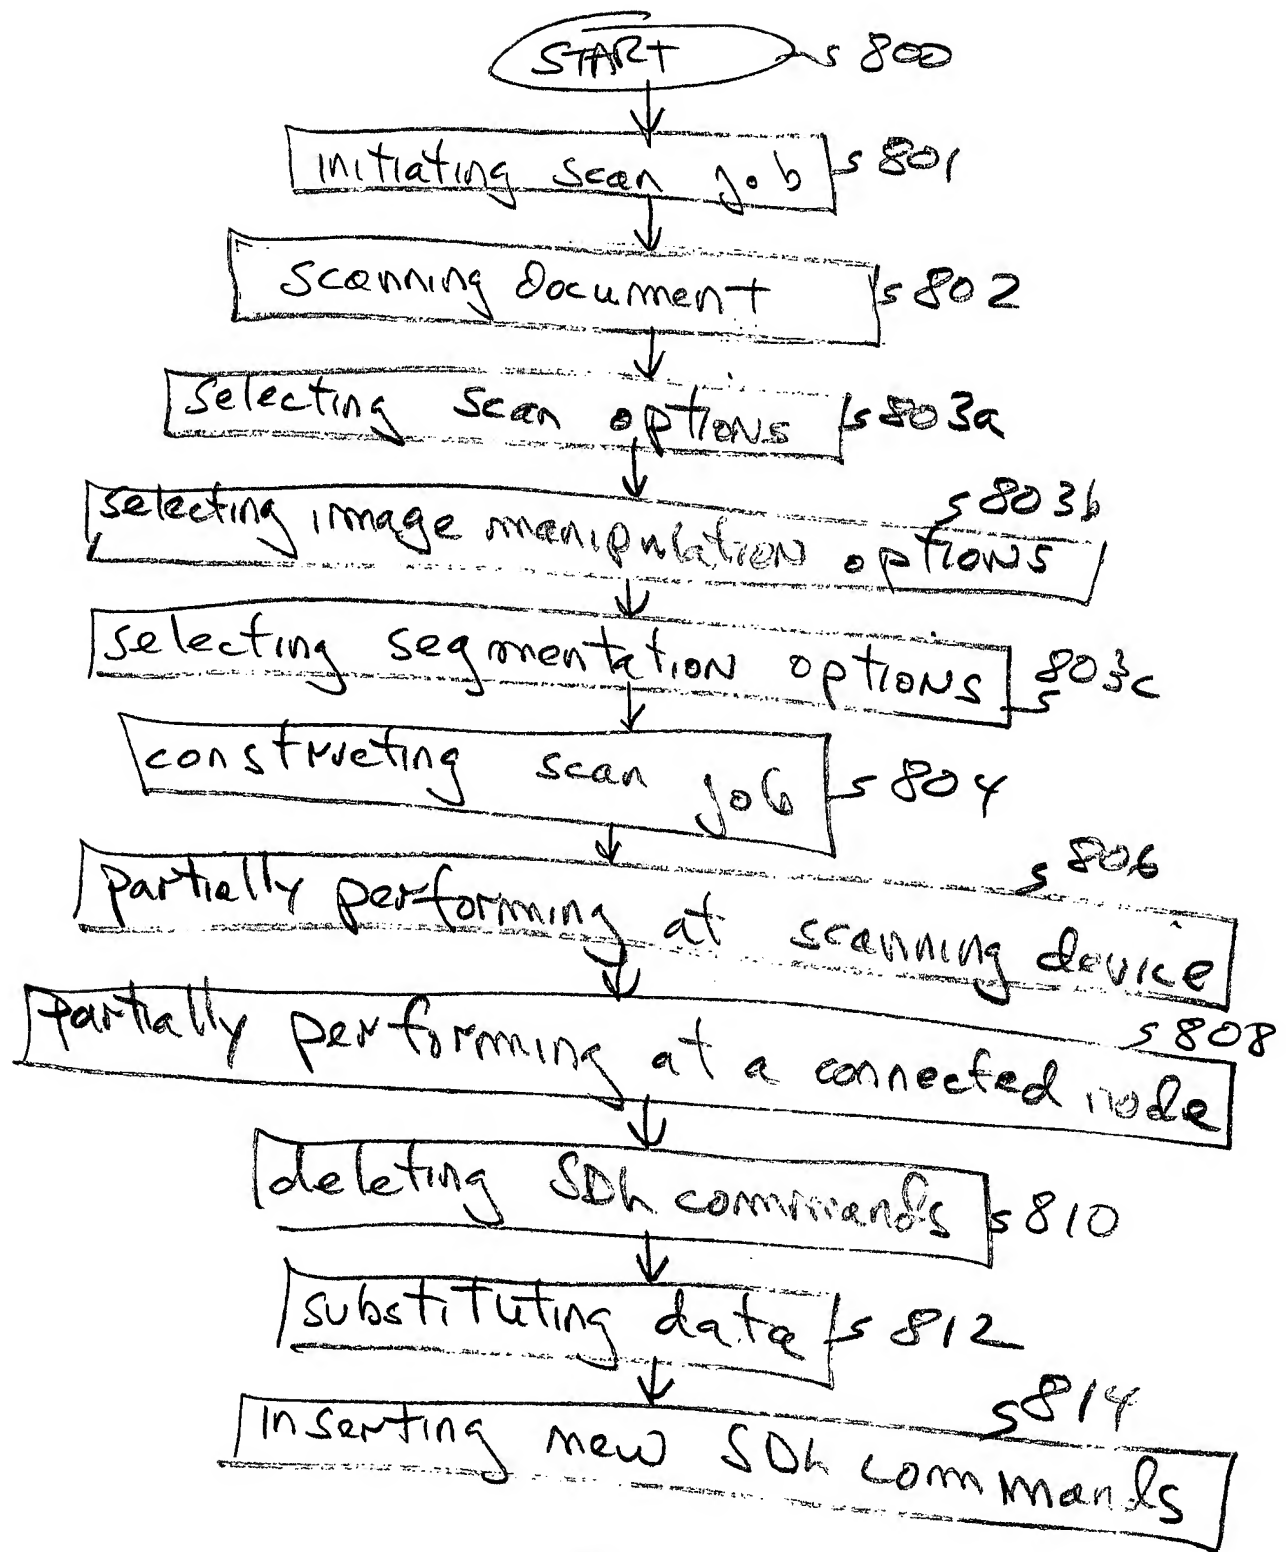 START s 800
initiating scan job s 801
scanning Document s 802
selecting scan options s 803a
s 803b
selecting image manipulation options
selecting segmentation options s 803c
constructing scan job s 804
s 806
partially performing at scanning device
s 808
partially performing at a connected node
deleting SDL commands s 810
substituting data s 812
s 814
inserting new SDL commands